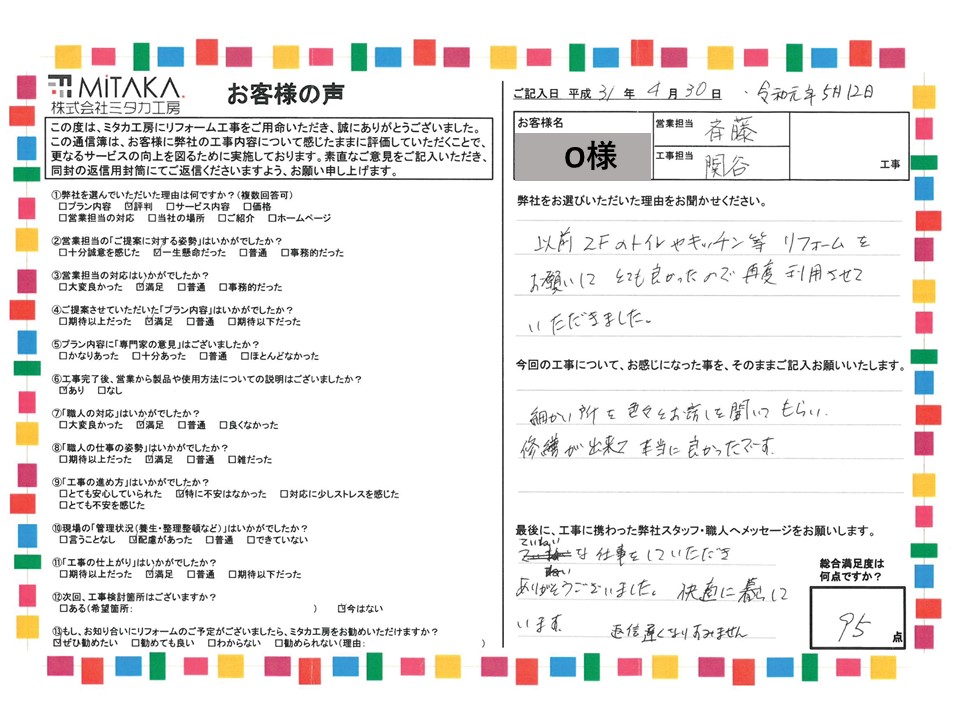 MiTAKA.
株式会社ミタカ工房
お客様の声
この度は、ミタカ工房にリフォーム工事をご用命いただき、誠にありがとうございました。
この通信簿は、お客様に弊社の工事内容について感じたままに評価していただくことで、
更なるサービスの向上を図るために実施しております。素直なご意見をご記入いただき、
同封の返信用封筒にてご返信くださいますよう、お願い申し上げます。
①弊社を選んでいただいた理由は何ですか?(複数回答可)
□プラン内容 ☑評判 □サービス内容 □価格
□営業担当の対応 □当社の場所 □ご紹介 □ホームページ
②営業担当の「ご提案に対する姿勢」はいかがでしたか?
□十分誠意を感じた ☑一生懸命だった □普通 □事務的だった
③営業担当の対応はいかがでしたか?
□大変良かった ☑満足 □普通 □事務的だった
④ご提案させていただいた「プラン内容」はいかがでしたか?
□期待以上だった ☑満足 □普通 □期待以下だった
⑤プラン内容に「専門家の意見」はございましたか?
□かなりあった □十分あった □普通 □ほとんどなかった
⑥工事完了後、営業から製品や使用方法についての説明はございましたか?
☑あり □なし
⑦「職人の対応」はいかがでしたか?
□大変良かった ☑満足 □普通 □良くなかった
⑧「職人の仕事の姿勢」はいかがでしたか?
□期待以上だった ☑満足 □普通 □雑だった
⑨「工事の進め方」はいかがでしたか?
□とても安心していられた ☑特に不安はなかった □対応に少しストレスを感じた
□とても不安を感じた
⑩現場の「管理状況(養生・整理整頓など)」はいかがでしたか?
□言うことなし ☑配慮があった □普通 □できていない
⑪「工事の仕上がり」はいかがでしたか?
□期待以上だった ☑満足 □普通 □期待以下だった
⑫次回、工事検討箇所はございますか?
□ある(希望箇所: ) ☑今はない
⑬もし、お知り合いにリフォームのご予定がございましたら、ミタカ工房をお勧めいただけますか?
☑ぜひ勧めたい □勧めても良い □わからない □勧められない(理由: )
ご記入日 平成 31 年 4 月 30 日 ・令和元年5月12日
お客様名
O様
営業担当 斉藤
工事担当 関谷
工事
弊社をお選びいただいた理由をお聞かせください。
以前 2Fのトイレやキッチン等 リフォームを
お願いして とても良かったので 再度 利用させて
いただきました。
今回の工事について、お感じになった事を、そのままご記入お願いいたします。
細かい所を色々とお話しを聞いてもらい.
修繕が出来て 本当に良かったです.
最後に、工事に携わった弊社スタッフ・職人へメッセージをお願いします。
ていねい
な 仕事をしていただき
ありがとうございました。 快適に暮して
います. 返信遅くなりすみません
総合満足度は
何点ですか?
95 点